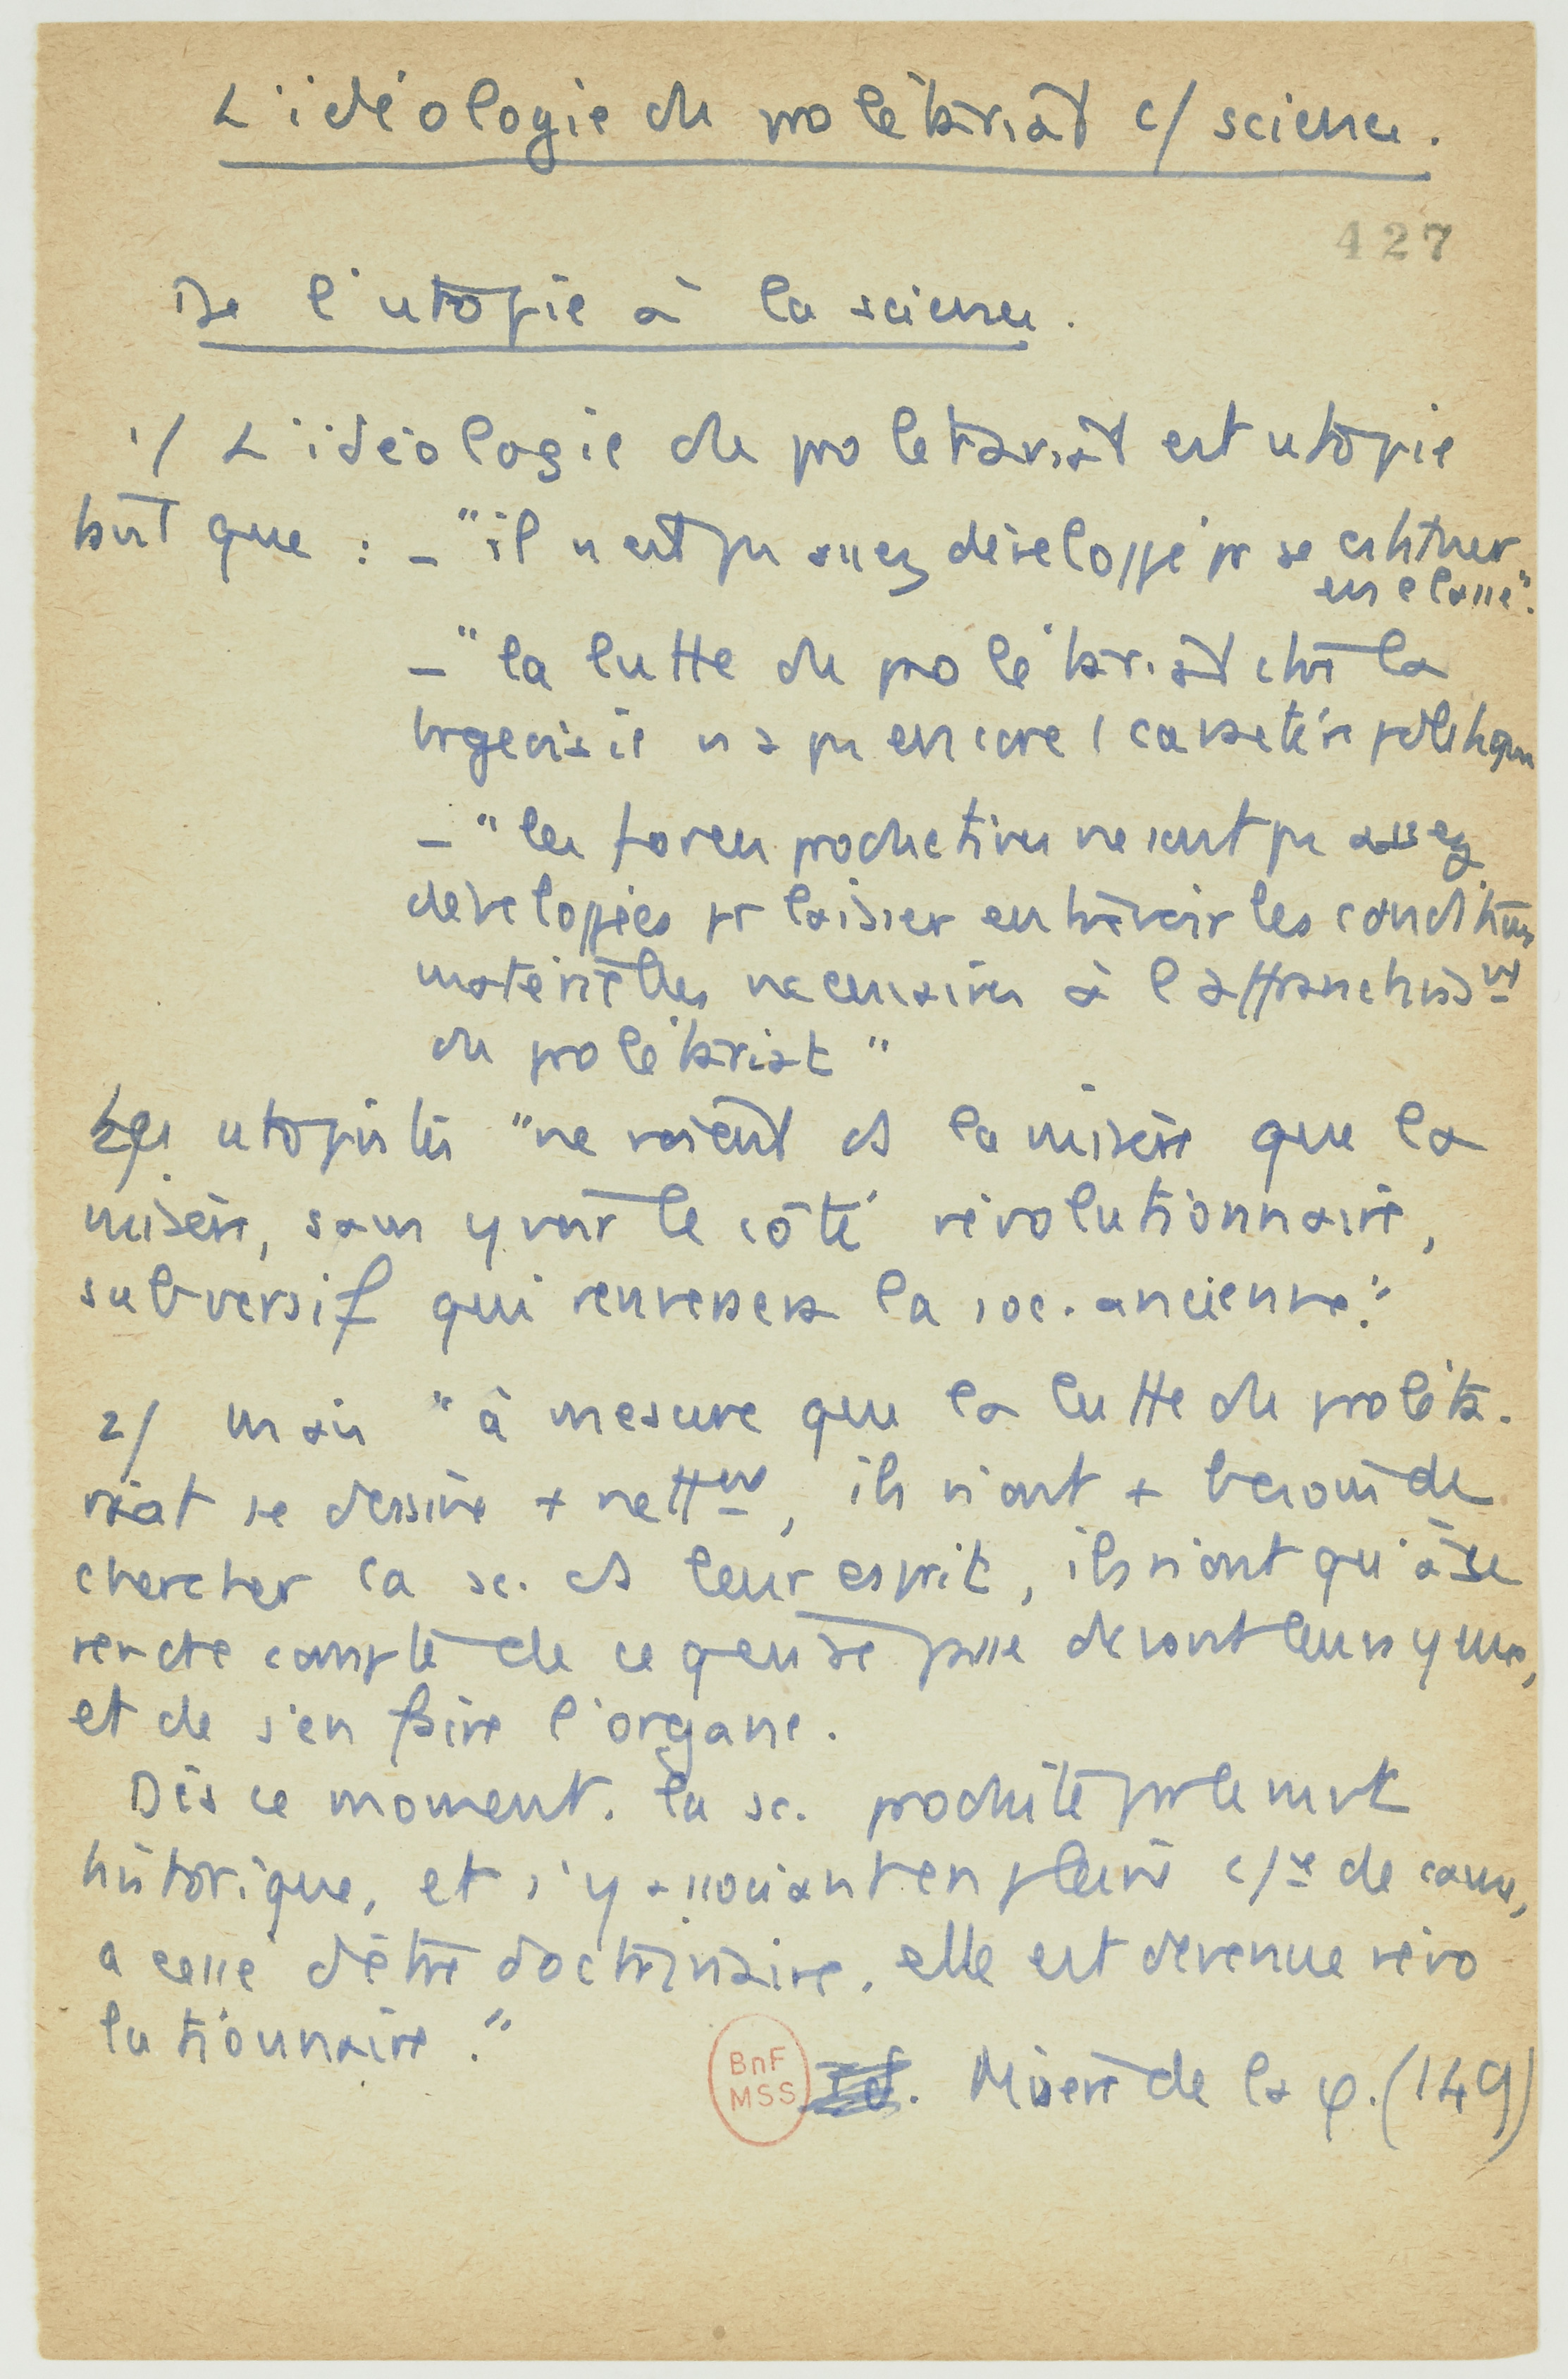 L'idéologie du prolétariat c/ science.
427
De l'utopie à la science.
1/ L'idéologie du proletariat est utopie
tant que : - "il n'est pas assez développé pr se cstituer
en classe".
- "la lutte du prolétariat ctre la
brgeoisie n'a pas encore 1 caractère politique
- "les forces productives ne sont pas assez
développées pr laisser entrevoir les conditions
matérielles necessaires à l'affranchisst
du prolétariat"
Les utopistes "ne voient ds la misère que la
misère, sans y voir le côté révolutionnaire,
subversif qui renversera la soc. ancienne."
2/ mais "à mesure que la lutte du proléta-
riat se dessine + nettent, ils n'ont + besoin de
chercher la sc. ds leur esprit, ils n'ont qu'à se
rendre compte de ce qui se passe devant leurs yeux,
et de s'en faire l'organe.
Dès ce moment. la sc. produite par le mvt
historique, et s'y associant en pleine c/ce de cause,
a cessé d'être doctrinaire, elle est devenue révo
lutionnaire."
BnF
MSS
Misère de la φ. (149)